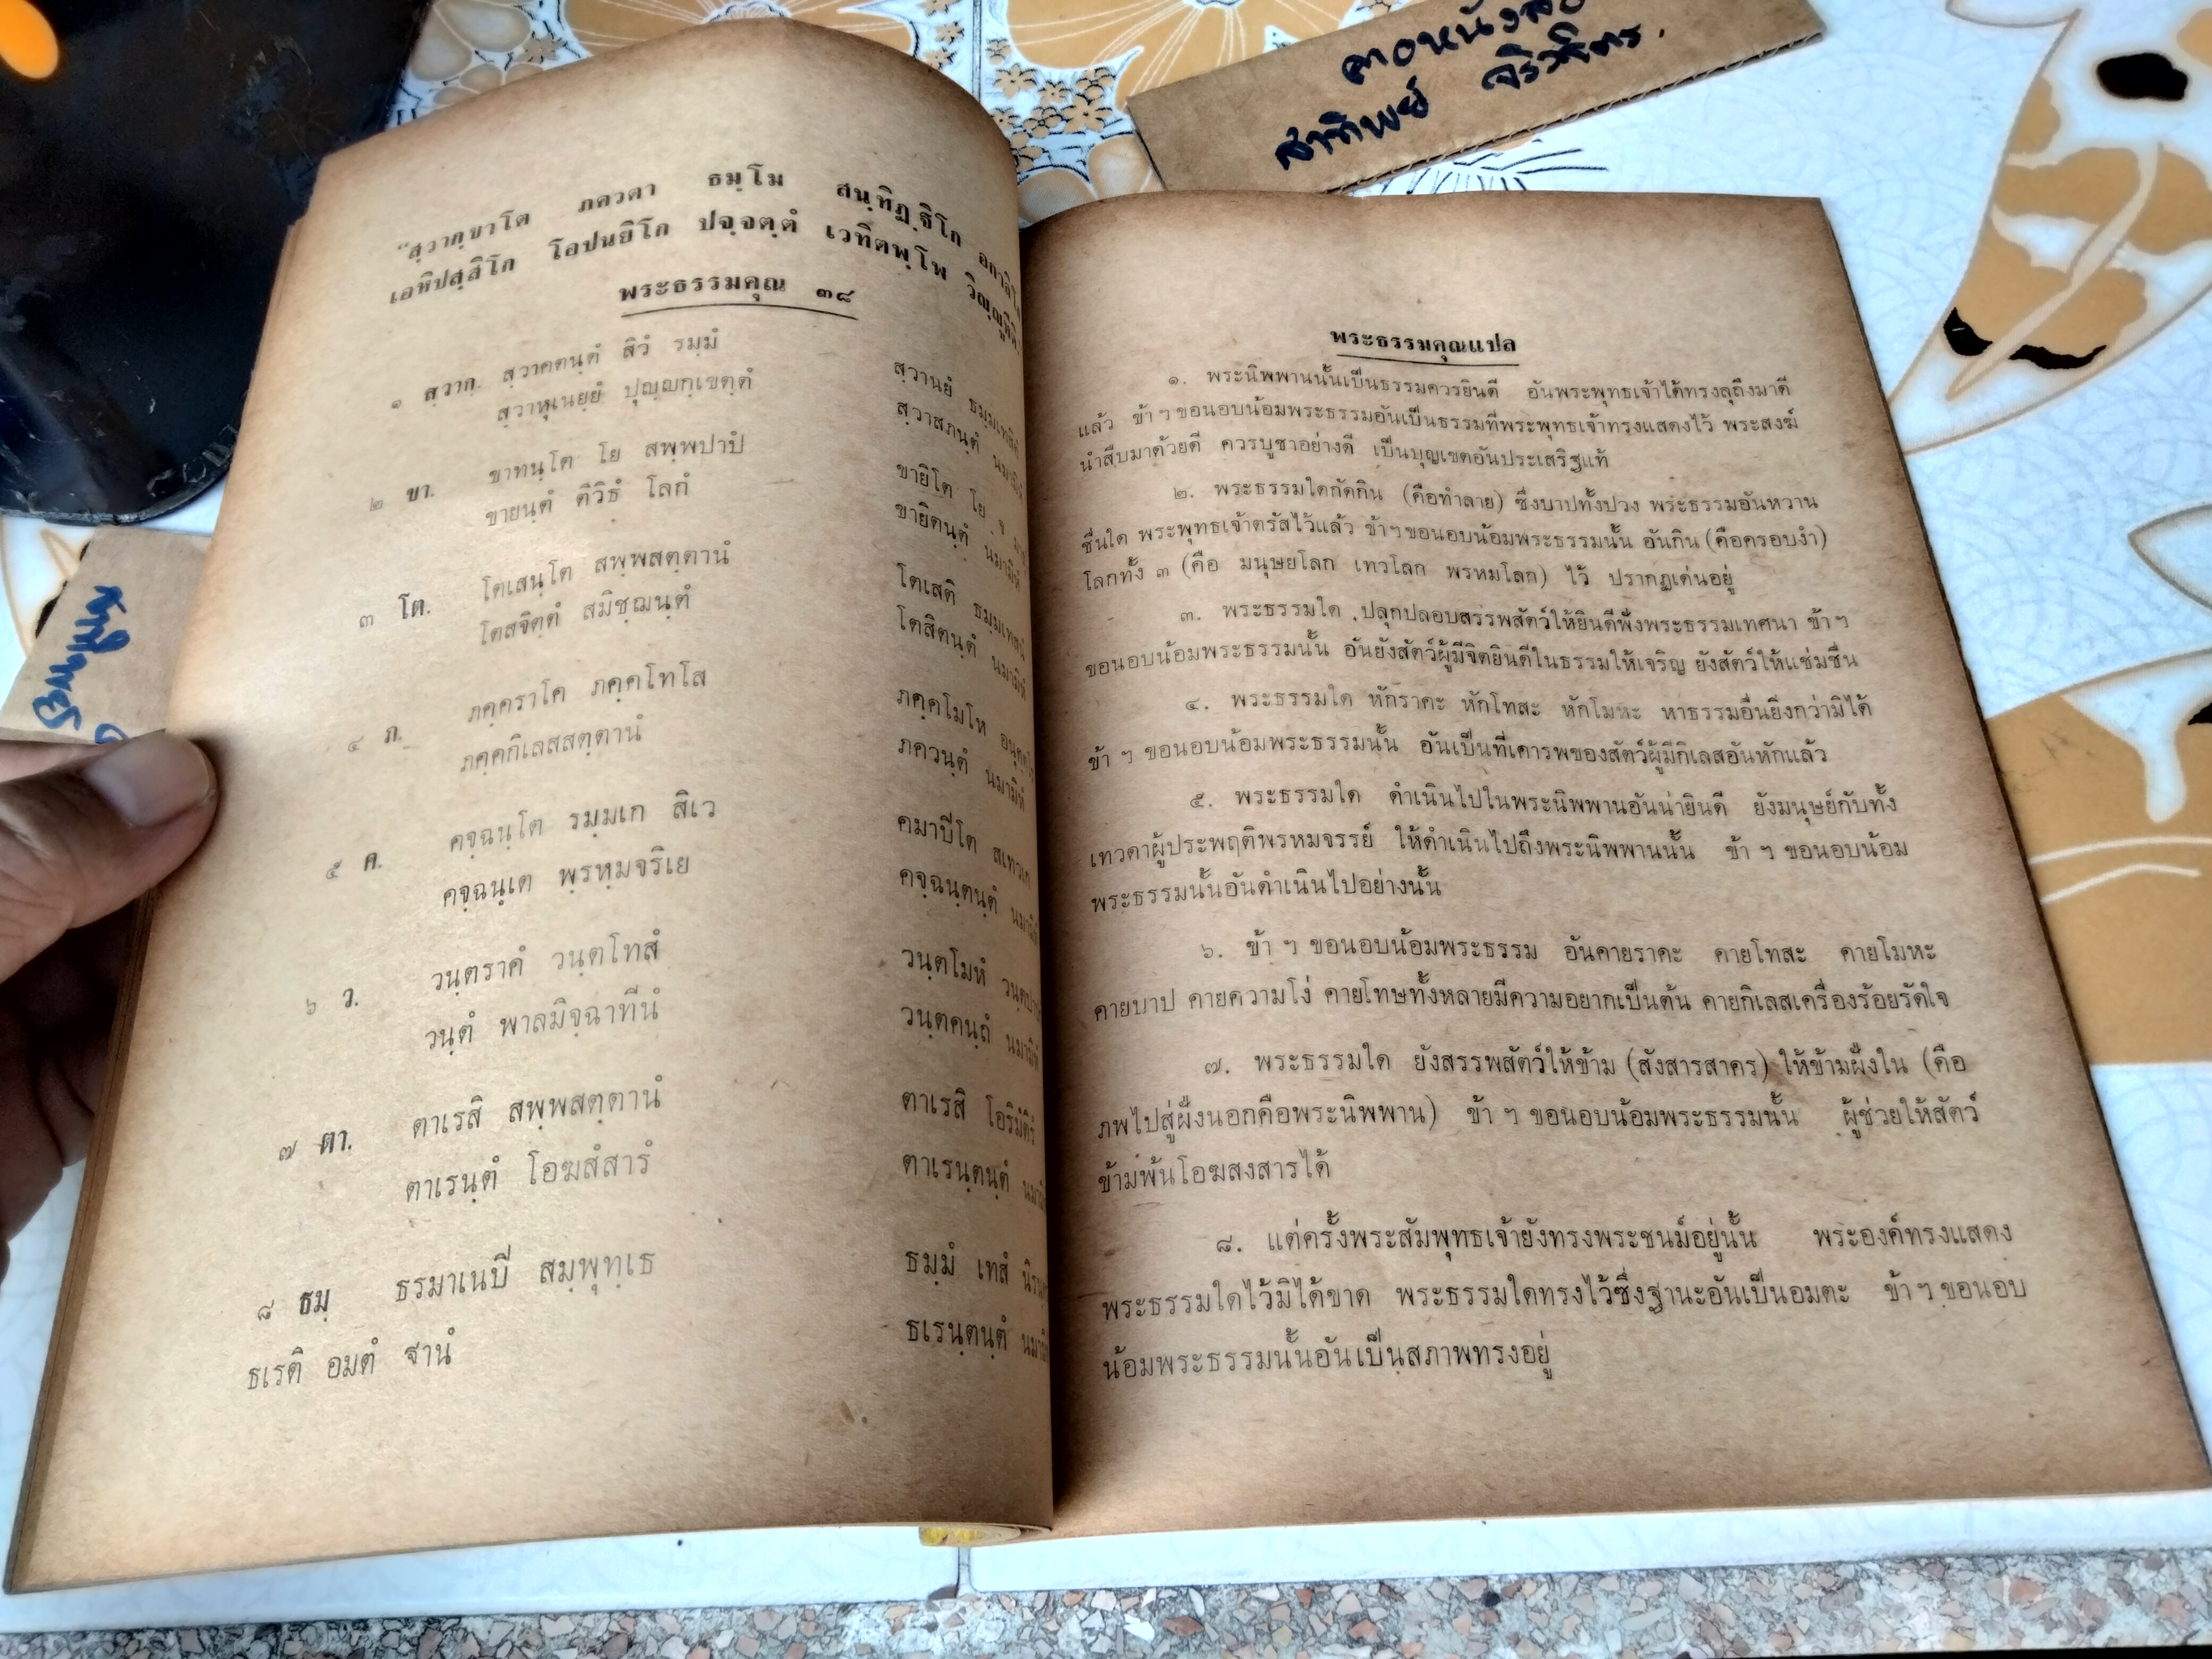 “สฺวากฺขาโต ภควตา ธมฺโม สนฺทิฏฺฐิโก
เอหิปสฺสิโก โอปนยิโก ปจฺจตฺตํ เวทิตพฺโพ
พระธรรมคุณ ๓๘
๑ สฺวากฺ. สฺวาคตนฺตํ สิวํ รมฺมํ สฺวานยํ
สฺวาหุเนยฺยํ ปุญฺญกฺเขตฺตํ สฺวาสภนฺตํ
๒ ขา. ขาทนฺโต โย สพฺพปาปํ ขายิโต โย จ
ขายนฺตํ ติวิธํ โลกํ ขายิตนฺตํ นมามิหํ
๓ โต. โตเสนฺโต สพฺพสตฺตานํ โตเสติ
โตสจิตฺตํ สมิชฺฌนฺตํ โตสิตนฺตํ นมามิหํ
๔ ภ. ภคฺคราโค ภคฺคโทโส ภคฺคโมโห
ภคฺคกิเลสสตฺตานํ ภควนฺตํ นมามิหํ
๕ ค. คจฺฉนฺโต รมฺมเก สิเว คมาปีโต
คจฺฉนฺเต พฺรหฺมจริเย คจฺฉนฺตนฺตํ
๖ ว. วนฺตราคํ วนฺตโทสํ วนฺตโมหํ
วนฺตํ พาลมิจฺฉาทีนํ วนฺตคนฺถํ
๗ ตา. ตาเรสิ สพฺพสตฺตานํ ตาเรสิ
ตาเรนฺตํ โอฆสํสารํ ตาเรนฺตนฺตํ
๘ ธมฺ ธรมาเนปี สมฺพุทฺเธ ธมฺมํ เทสํ
ธเรติ อมตํ ฐานํ ธเรนฺตนฺตํ
พระธรรมคุณแปล
๑. พระนิพพานนั้นเป็นธรรมควรยินดี อันพระพุทธเจ้าได้ทรงลุถึงมาดี
แล้ว ข้า ฯ ขอนอบน้อมพระธรรมอันเป็นธรรมที่พระพุทธเจ้าทรงแสดงไว้ พระสงฆ์
นำสืบมาด้วยดี ควรบูชาอย่างดี เป็นบุญเขตอันประเสริฐแท้
๒. พระธรรมใดกัดกิน (คือทำลาย) ซึ่งบาปทั้งปวง พระธรรมอันหวาน
ชื่นใด พระพุทธเจ้าตรัสไว้แล้ว ข้าฯขอนอบน้อมพระธรรมนั้น อันกิน (คือครอบงำ)
โลกทั้ง ๓ (คือ มนุษยโลก เทวโลก พรหมโลก) ไว้ ปรากฏเด่นอยู่
๓. พระธรรมใด ปลุกปลอบสรรพสัตว์ให้ยินดีฟังพระธรรมเทศนา ข้าฯ
ขอนอบน้อมพระธรรมนั้น อันยังสัตว์ผู้มีจิตยินดีในธรรมให้เจริญ ยังสัตว์ให้แช่มชื่น
๔. พระธรรมใด หักราคะ หักโทสะ หักโมหะ หาธรรมอื่นยิ่งกว่ามิได้
ข้า ฯ ขอนอบน้อมพระธรรมนั้น อันเป็นที่เคารพของสัตว์ผู้มีกิเลสอันหักแล้ว
๕. พระธรรมใด ดำเนินไปในพระนิพพานอันน่ายินดี ยังมนุษย์กับทั้ง
เทวดาผู้ประพฤติพรหมจรรย์ ให้ดำเนินไปถึงพระนิพพานนั้น ข้า ฯ ขอนอบน้อม
พระธรรมนั้นอันดำเนินไปอย่างนั้น
๖. ข้า ฯ ขอนอบน้อมพระธรรม อันคายราคะ คายโทสะ คายโมหะ
คายบาป คายความโง่ คายโทษทั้งหลายมีความอยากเป็นต้น คายกิเลสเครื่องร้อยรัดใจ
๗. พระธรรมใด ยังสรรพสัตว์ให้ข้าม (สังสารสาคร) ให้ข้ามฝั่งใน (คือ
ภพไปสู่ฝั่งนอกคือพระนิพพาน) ข้า ฯ ขอนอบน้อมพระธรรมนั้น ผู้ช่วยให้สัตว์
ข้ามพ้นโอฆสงสารได้
๘. แต่ครั้งพระสัมพุทธเจ้ายังทรงพระชนม์อยู่นั้น พระองค์ทรงแสดง
พระธรรมใดไว้มิได้ขาด พระธรรมใดทรงไว้ซึ่งฐานะอันเป็นอมตะ ข้าฯ ขอนอบ
น้อมพระธรรมนั้นอันเป็นสภาพทรงอยู่